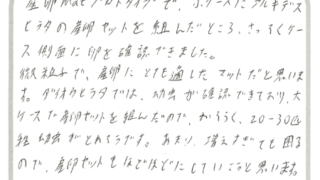 産卵Maxとプロトタイプで、小ケースにアルキデス
ヒラタの産卵セットを組んだところ、さっそくケー
ス側面に卵を確認できました。
微粒子で、産卵にとても適したマットだと思いま
す。ダイオウヒラタでは、幼虫が確認できており、大
ケースで産卵セットを組んだので、おそらく、20-30
幼虫がとれそうです。あまり増えすぎても困る
ので、産卵セットもほどほどにしていこうと思います。